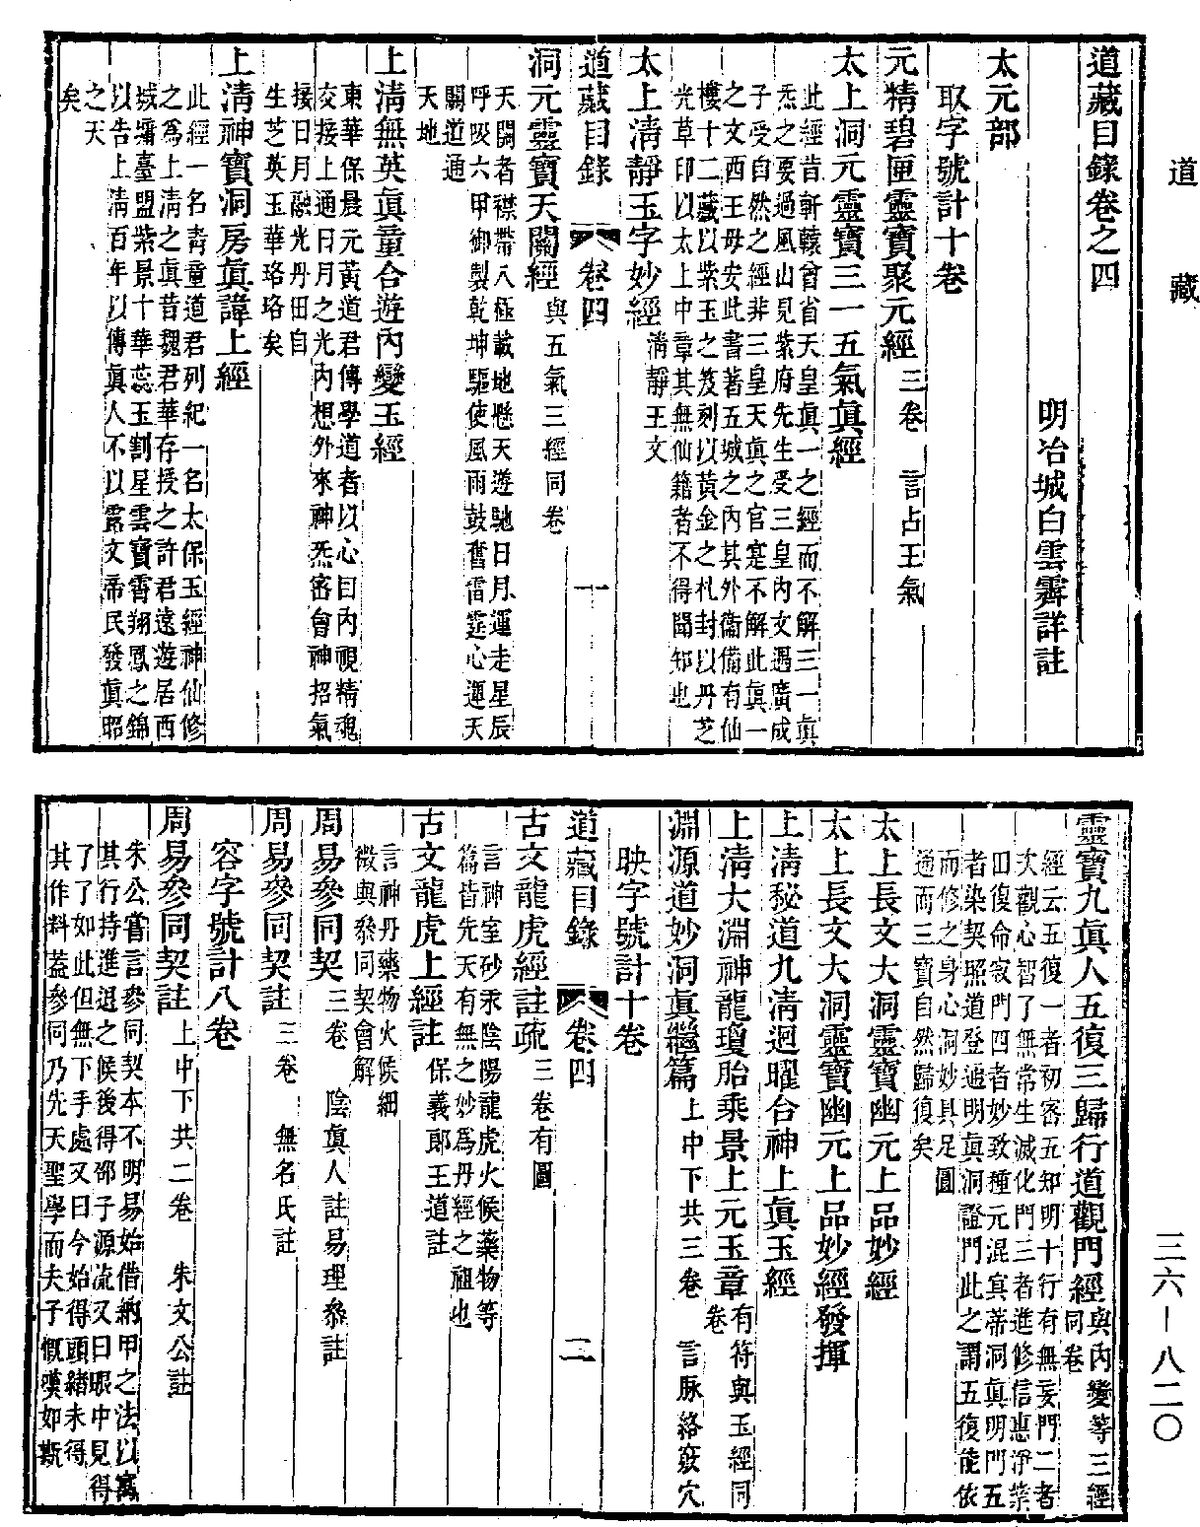 道藏
道藏目錄卷之四
明冶城白雲霽詳註
太元部
取字號計十卷
元精碧匣靈寶聚元經 三卷 言占王氣
太上洞元靈寶三一五氣眞經
此經昔軒轅曾省天皇眞一之經而不解三一眞
炁之要過風山見紫府先生受三皇內文遇廣成
子受自然之經非三皇天眞之官寔不解此眞一
之文西王母安此書著五城之內其外衞備有仙
樓十二藏以紫玉之笈刻以黃金之札封以丹芝
光草印以太上中章其無仙籍者不得聞知也
太上淸靜玉字妙經 淸靜王文
道藏目錄 卷四 一
洞元靈寶天關經 與五氣三經同卷
天關者襟帶八極載地懸天遊馳日月運走星辰
呼吸六甲御製乾坤驅使風雨鼓舊雷霆心運天
關道通
天地
上淸無英眞童合遊內變玉經
東華保晨元黃道君傳學道者以心目內視精魂
交接上通日月之光內想外來神炁密會神招氣
接日月融光丹田自
生芝英玉華珞珞矣
上淸神寶洞房眞諱上經
此經一名靑童道君列紀一名太保玉經神仙修
之爲上淸之眞昔魏君華存授之許君遠遊居西
城墉臺盟紫景十華蕊玉割星雲寶霄翔鳳之錦
以告上淸百年以傳眞人不以露文帝民發眞昭
之天
矣
靈寶九眞人五復三歸行道觀門經 與內變等三經
同卷
經云五復一者初密五知明十行有無妄門二者
次觀心智了無常生滅化門三者進修信惠淨業
田復命寂門四者妙致種元混寘蒂洞眞明門五
者染契照道登通明眞洞證門此之謂五復能依
而修之身心洞妙具足圓
通而三寶自然歸復矣
太上長文大洞靈寶幽元上品妙經
太上長文大洞靈寶幽元上品妙經發揮
上淸秘道九淸迴曜合神上眞玉經
上淸大淵神龍瓊胎乘景上元玉章 有符與玉經同
卷
淵源道妙洞眞繼篇 上中下共三卷 言脉絡竅穴
映字號計十卷
道藏目錄 卷四 二
古文龍虎經註疏 三卷有圖
言神室砂汞陰陽龍虎火候藥物等
篇皆先天有無之妙爲丹經之祖也
古文龍虎上經註 保義郎王道註
言神丹藥物火候細
微與叅同契會解
周易參同契 三卷 陰眞人註易理叅註
周易參同契註 三卷 無名氏註
容字號計八卷
周易參同契註 上中下共二卷 朱文公註
朱公嘗言參同契本不明易始借納甲之法以寓
其行持進退之候後得邵子源流又曰眼中見得
了了如此但無下手處又曰今始得頭緒未得
其作料蓋參同乃先天聖學而夫子慨嘆如斯
三六—八二〇